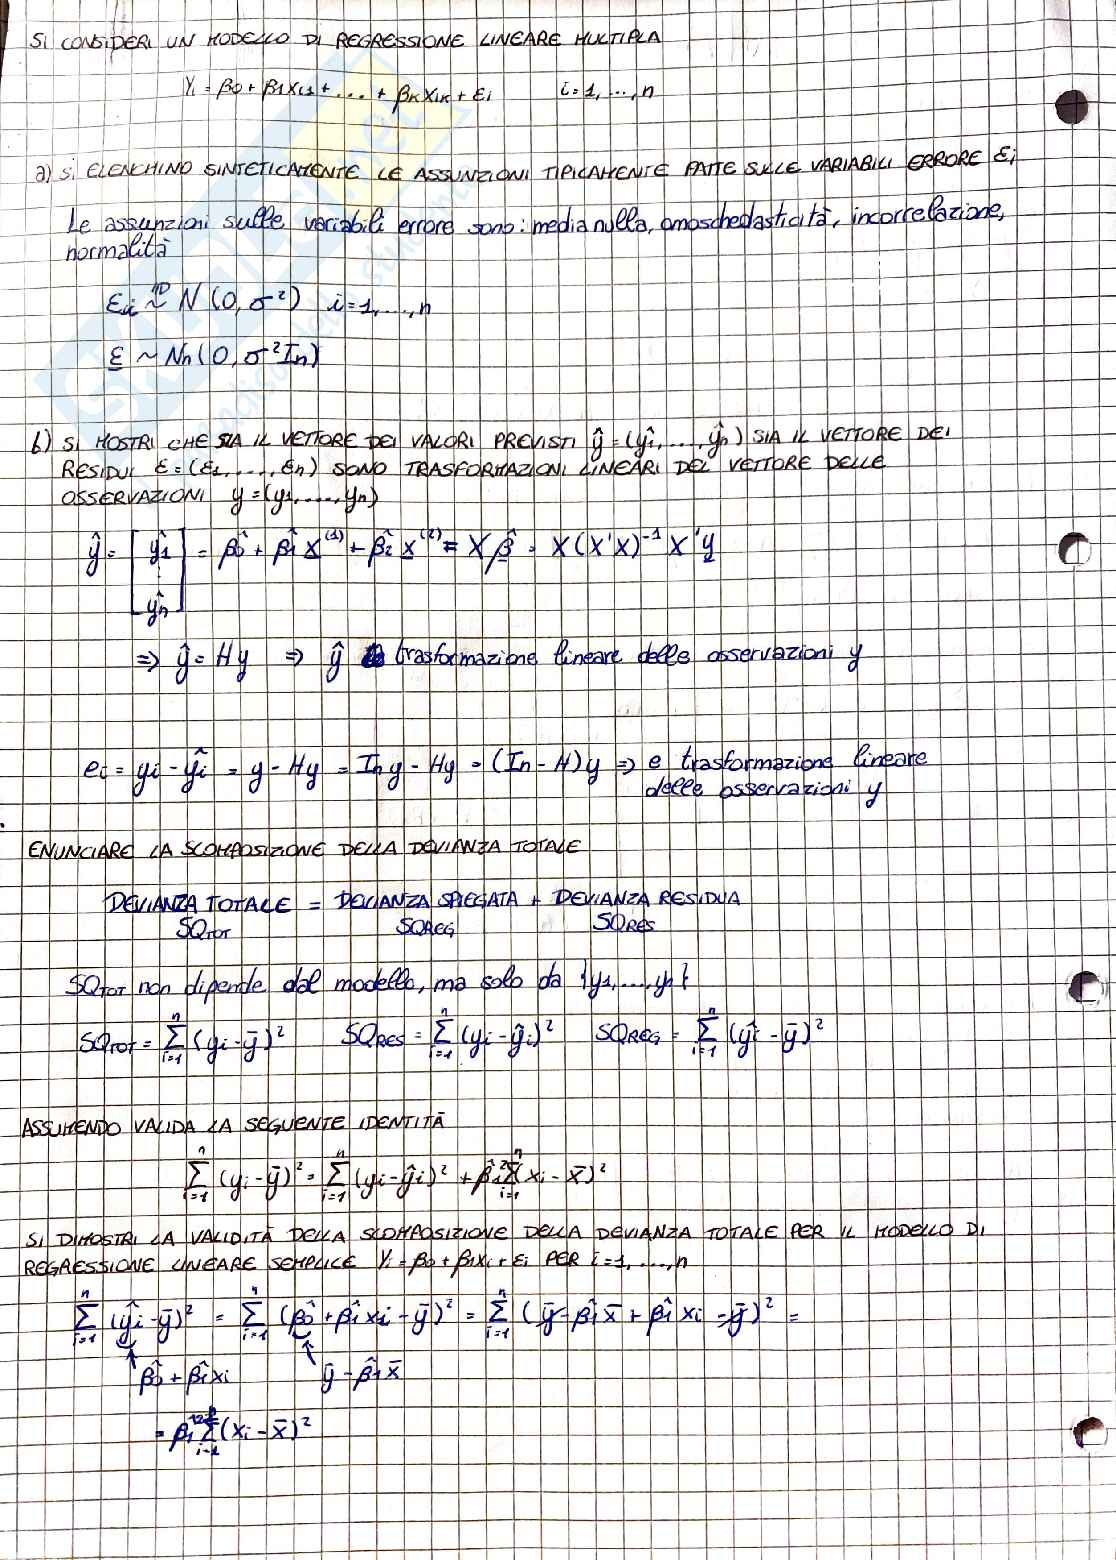 SI CONSIDERI UN MODELLO DI REGRESSIONE LINEARE MULTIPLA
Yi = β0 + β1xi1 + ... + βkxik + εi i=1, ..., n
a) SI ELENCHINO SINTETICAMENTE LE ASSUNZIONI TIPICAMENTE FATTE SULLE VARIABILI ERRORE εi
Le assunzioni sulle variabili errore sono: media nulla, omoschedasticità, incorrelazione,
normalità
εi ~ N(0, σ²) i=1, ..., n
ε ~ Nn(0, σ²In)
b) SI MOSTRI CHE SIA IL VETTORE DEI VALORI PREVISTI ŷ=(ŷ1, ..., ŷn) SIA IL VETTORE DEI
RESIDUI ε=(ε1, ..., εn) SONO TRASFORMAZIONI LINEARI DEL VETTORE DELLE
OSSERVAZIONI y=(y1, ..., yn)
ŷ = [ŷ1 ⋮ ŷn] = β̂0 + β̂1 x⁽¹⁾ + β̂2 x⁽²⁾ = Xβ̂ = X(X'X)⁻¹X'y
⇒ ŷ = Hy ⇒ ŷ trasformazione lineare delle osservazioni y
ei = yi - ŷi = y - Hy = In y - Hy = (In - H)y ⇒ e trasformazione lineare
delle osservazioni y
ENUNCIARE LA SCOMPOSIZIONE DELLA DEVIANZA TOTALE
DEVIANZA TOTALE = DEVIANZA SPIEGATA + DEVIANZA RESIDUA
SQTOT SQREG SQRES
SQTOT non dipende dal modello, ma solo da {y1, ..., yn}
SQTOT = Σⁿi=1 (yi - ȳ)² SQRES = Σⁿi=1 (yi - ŷi)² SQREG = Σⁿi=1 (ŷi - ȳ)²
ASSUMENDO VALIDA LA SEGUENTE IDENTITÀ
Σⁿi=1 (yi - ȳ)² = Σⁿi=1 (yi - ŷi)² + β̂1² Σⁿi=1 (xi - x̄)²
SI DIMOSTRI LA VALIDITÀ DELLA SCOMPOSIZIONE DELLA DEVIANZA TOTALE PER IL MODELLO DI
REGRESSIONE LINEARE SEMPLICE Yi = β0 + β1xi + εi PER i=1, ..., n
Σⁿi=1 (ŷi - ȳ)² = Σⁿi=1 (β̂0 + β̂1xi - ȳ)² = Σⁿi=1 (ȳ - β̂1x̄ + β̂1xi - ȳ)² =
β̂0 + β̂1xi ȳ - β̂1x̄
= β̂1² Σⁿi=1 (xi - x̄)²